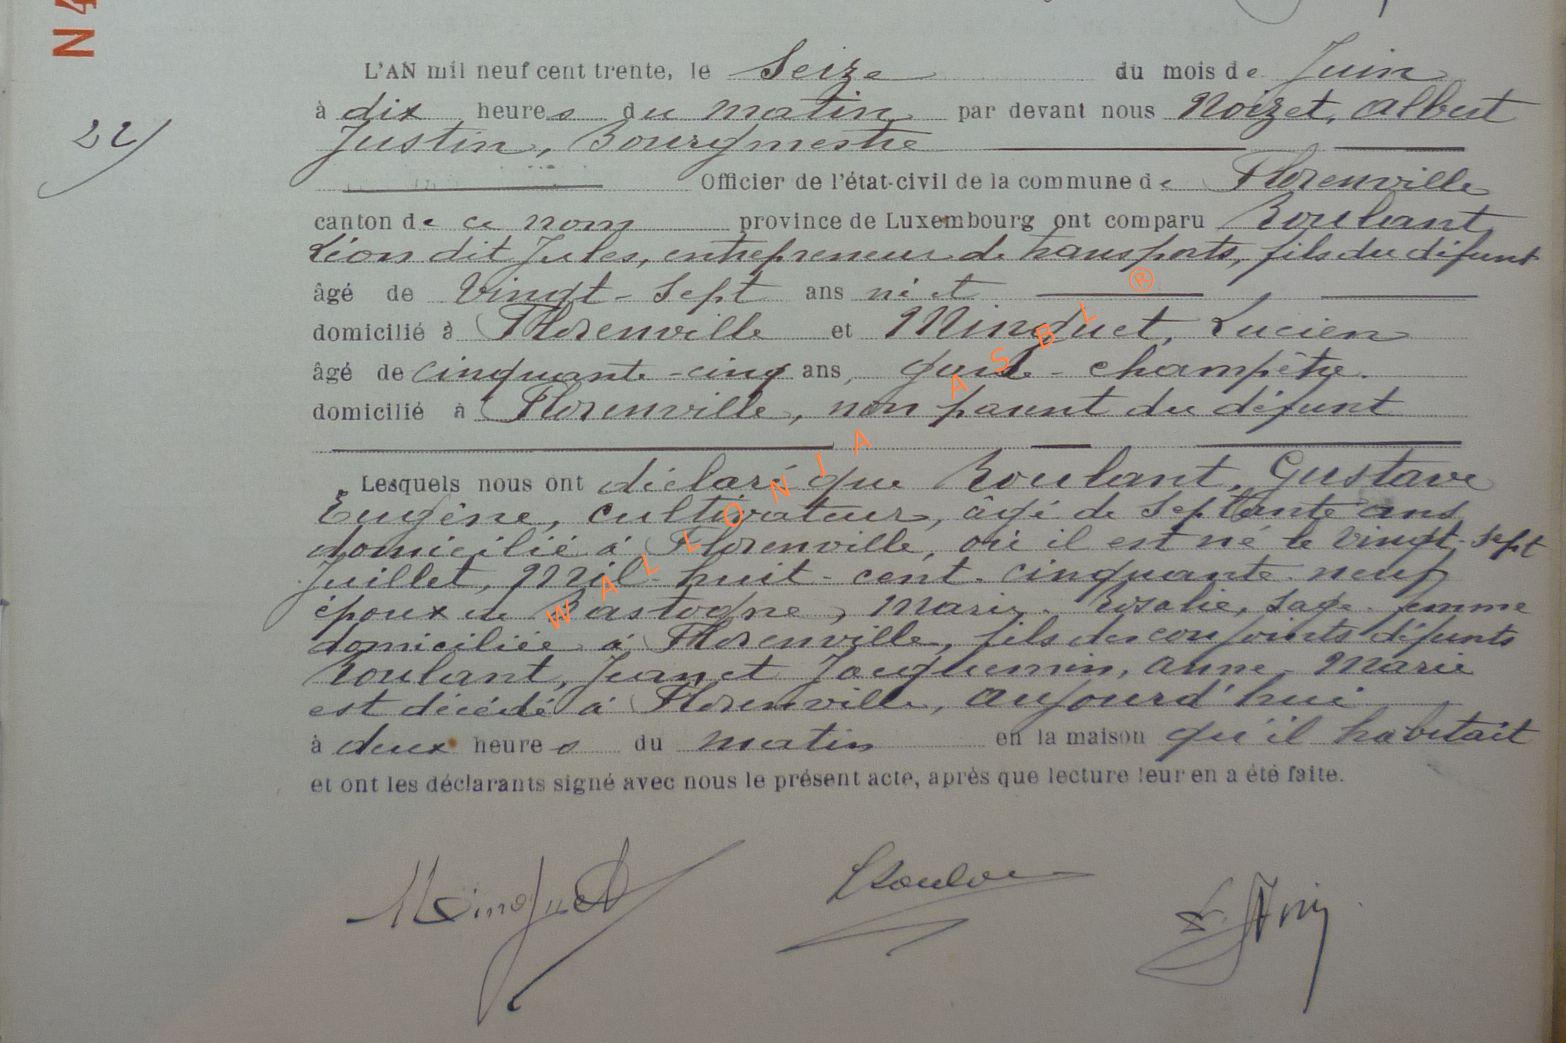 N 4
22/
L'AN mil neuf cent trente, le Seize du mois de Juin
à dix heures du matin par devant nous Noizet, Albert
Justin, Bourgmestre
Officier de l'état-civil de la commune de Florenville
canton de ce nom province de Luxembourg ont comparu Roulant
Léon dit Jules, entrepreneur de transports, fils du défunt
âgé de Vingt-Sept ans né et
domicilié à Florenville et Minguet, Lucien
âgé de cinquante-cinq ans, garde-champêtre.
domicilié à Florenville, non parent du défunt
Lesquels nous ont déclaré que Roulant, Gustave
Eugène, cultivateur, âgé de Septante ans
domicilié à Florenville, où il est né le Vingt-Sept
Juillet, Mil-huit-cent-cinquante-neuf
époux de Bastogne, Marie-Rosalie, Sage-femme
domiciliée à Florenville, fils des conjoints défunts
Roulant, Jean et Jacquemin, Anne-Marie
est décédé à Florenville, aujourd'hui
à deux heures du matin en la maison qu'il habitait
et ont les déclarants signé avec nous le présent acte, après que lecture leur en a été faite.
Minguet
WALLONIA ASBL ®